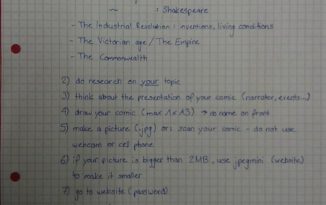 ~ : Shakespeare
- The Industrial Revolution : inventions, living conditions
- The Victorian age / The Empire
- The Commonwealth
2) do research on your topic
3) think about the presentation of your comic (narrator, events...)
4) draw your comic (max 1xA3) → no name on front
5) make a picture (.jpg) or scan your comic - do not use
webcam or cell phone
6) if your picture is bigger than 2MB, use jpegmini (website)
to make it smaller
7) go to website (password)